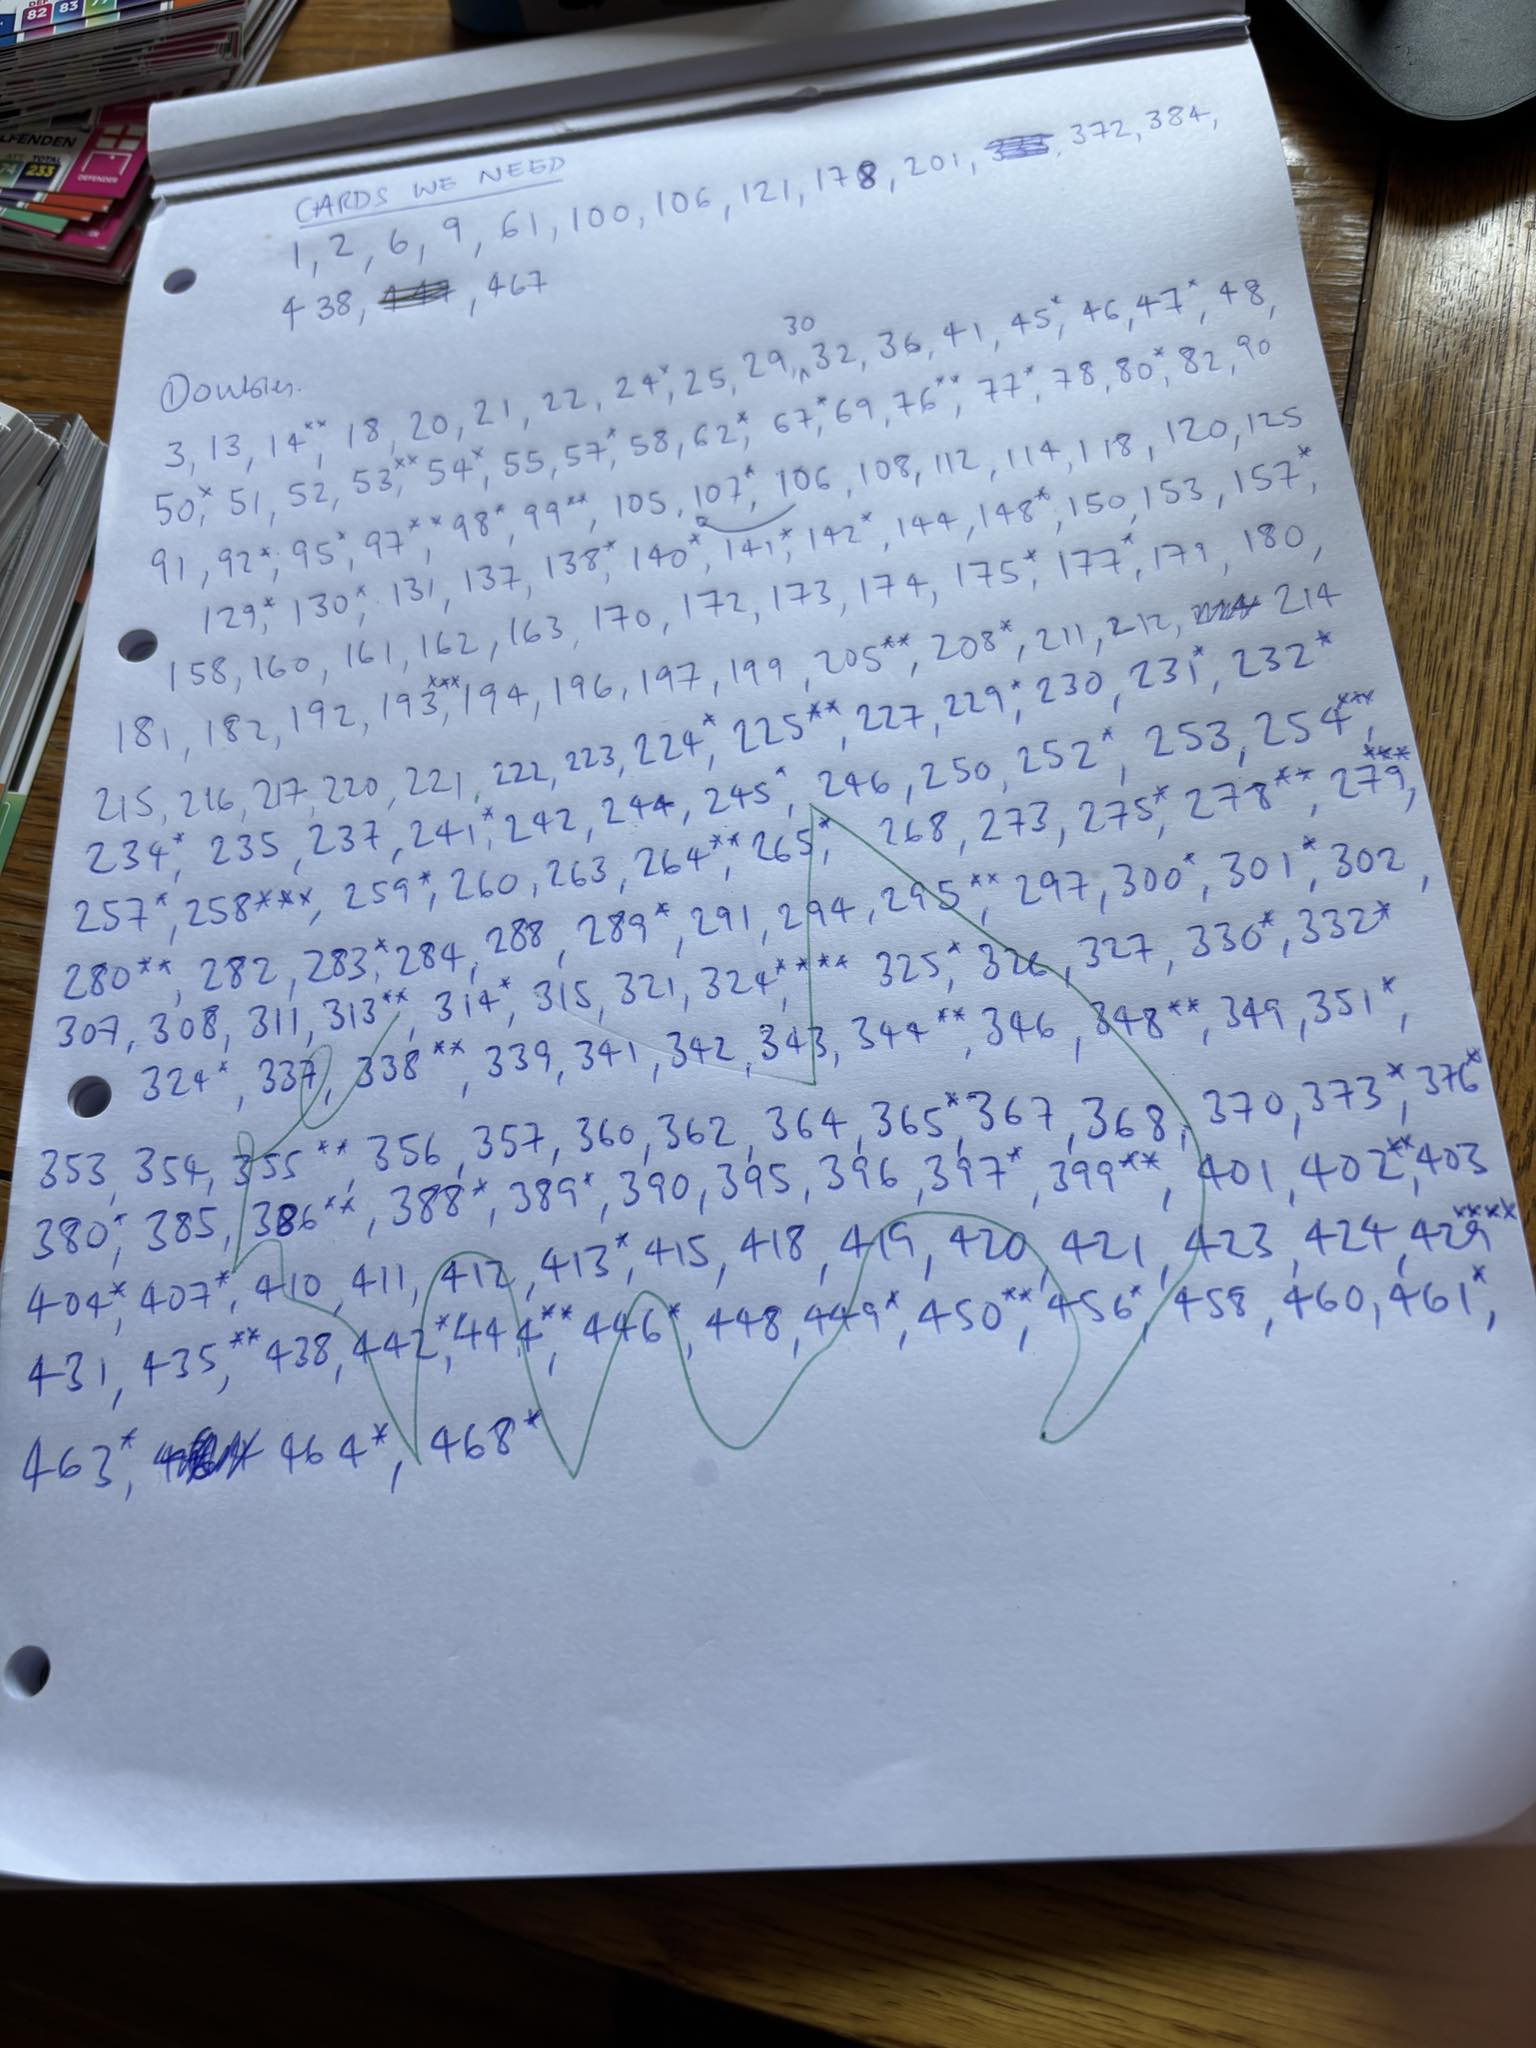 82 83
LFENDEN
TOTAL
233
DEFENDER
CARDS WE NEED
1, 2, 6, 9, 61, 100, 106, 121, 178, 201, 372, 384,
438, 467
Doubles.
30
3, 13, 14**, 18, 20, 21, 22, 24*, 25, 29, 32, 36, 41, 45*, 46, 47*, 48,
50*, 51, 52, 53**, 54*, 55, 57*, 58, 62*, 67*, 69, 76**, 77*, 78, 80*, 82, 90
91, 92*, 95*, 97**, 98*, 99**, 105, 107*, 106, 108, 112, 114, 118, 120, 125
129*, 130*, 131, 137, 138*, 140*, 141*, 142*, 144, 148*, 150, 153, 157*,
158, 160, 161, 162, 163, 170, 172, 173, 174, 175*, 177*, 179, 180,
181, 182, 192, 193***, 194, 196, 197, 199, 205**, 208*, 211, 212, 214
215, 216, 217, 220, 221, 222, 223, 224*, 225**, 227, 229*, 230, 231*, 232*
234*, 235, 237, 241*, 242, 244, 245*, 246, 250, 252*, 253, 254***,
257*, 258***, 259*, 260, 263, 264**, 265*, 268, 273, 275*, 278**, 279***,
280**, 282, 283*, 284, 288, 289*, 291, 294, 295**, 297, 300*, 301*, 302,
307, 308, 311, 313**, 314*, 315, 321, 324****, 325*, 326, 327, 330*, 332*
324*, 337, 338**, 339, 341, 342, 343, 344**, 346, 348**, 349, 351*,
353, 354, 355**, 356, 357, 360, 362, 364, 365*, 367, 368, 370, 373*, 376*
380*, 385, 386**, 388*, 389*, 390, 395, 396, 397*, 399**, 401, 402**, 403
404*, 407*, 410, 411, 412, 413*, 415, 418, 419, 420, 421, 423, 424, 429****
431, 435,** 438, 442*, 444**, 446*, 448, 449*, 450**, 456*, 458, 460, 461*,
463*, 464*, 468*